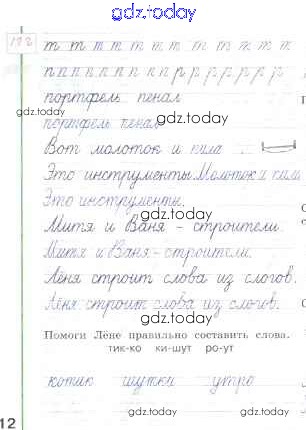 gdz.today
112 т т т т т т т т т т т т
gdz.today
п п п п п п п п р р р р р р р
портфель пенал
gdz.today
портфель пенал
Вот молоток и пила
gdz.today
Это инструменты. Молоток и пила
Это инструменты.
gdz.today
Митя и Ваня - строители.
Митя и Ваня - строители.
gdz.today
Лёня строит слова из слогов.
Лёня строит слова из слогов.
gdz.today
Помоги Лёне правильно составить слова.
тик-ко ки-шут ро-ут
gdz.today
котик шутки утро
12
gdz.today